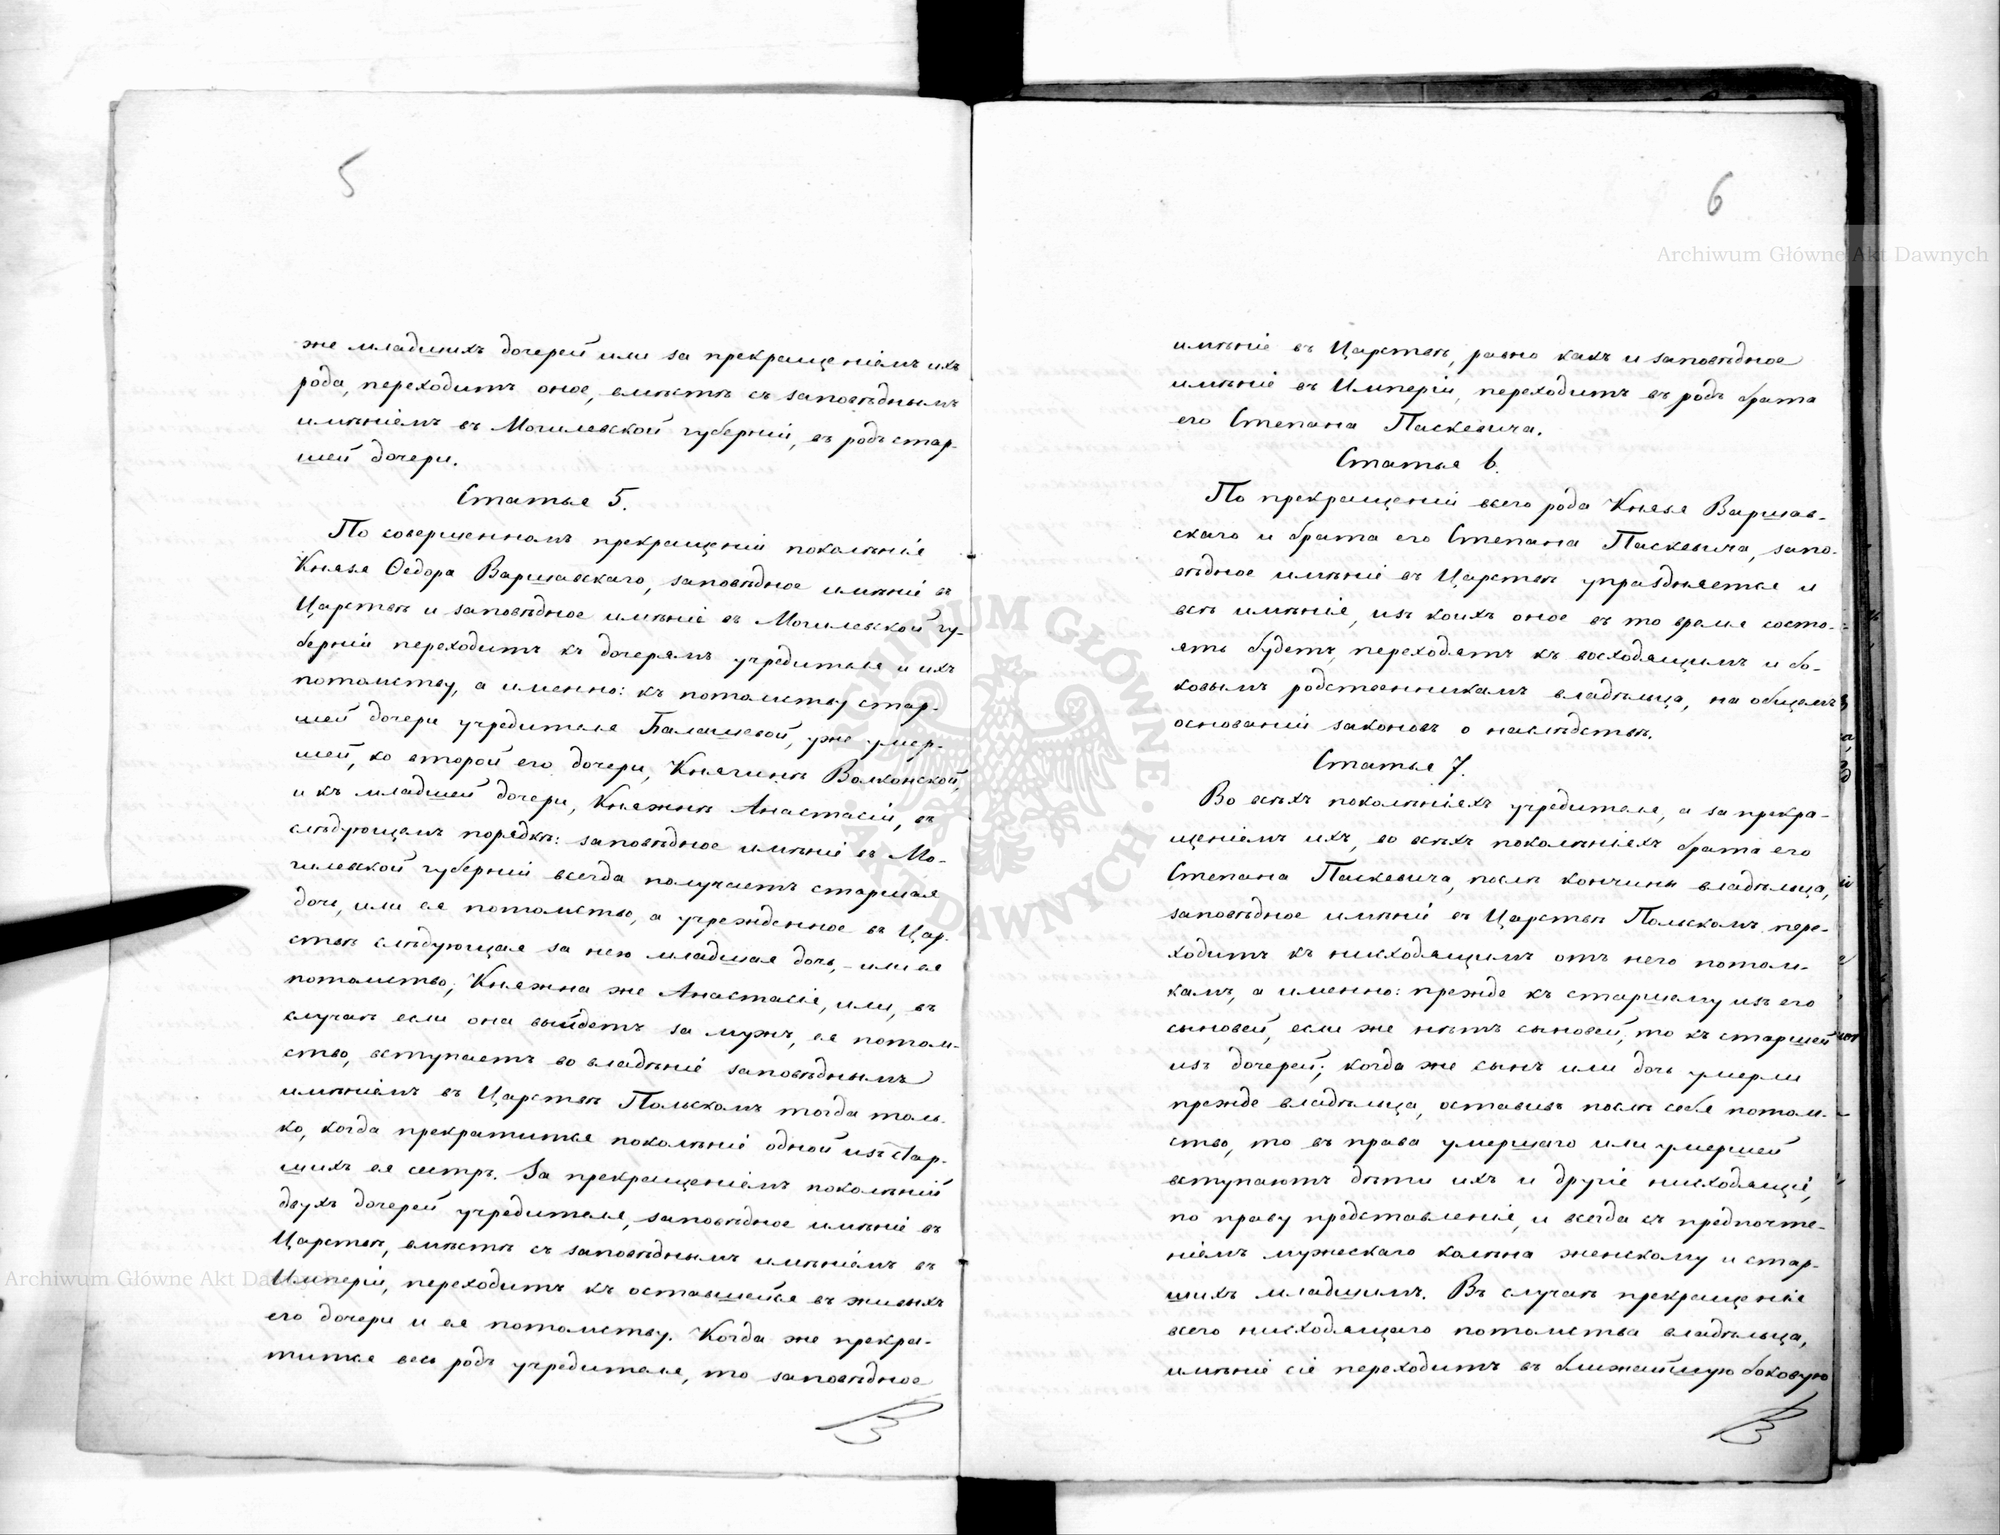 5
же младшихъ дочерей или за прекращеніемъ ихъ
рода, переходитъ оное, вмѣстѣ съ заповѣднымъ
имѣніемъ въ Могилевской губерніи, въ родъ стар-
шей дочери.
Статья 5.
По совершенномъ прекращеніи поколѣнія
Князя Ѳедора Варшавскаго, заповѣдное имѣніе въ
Царствѣ и заповѣдное имѣніе въ Могилевской гу-
берніи переходитъ къ дочерямъ учредителя и ихъ
потомству, а именно: къ потомству стар-
шей дочери учредителя Балашевой, уже умер-
шей, ко второй его дочери, Княгинѣ Волконской,
и къ младшей дочери, Княжнѣ Анастасіи, въ
слѣдующемъ порядкѣ: заповѣдное имѣніе въ Мо-
гилевской губерніи всегда получаетъ старшая
дочь, или ея потомство, а учрежденное въ Цар-
ствѣ слѣдующая за нею младшая дочь, или ея
потомство; Княжна же Анастасія, или, въ
случаѣ если она выйдетъ за мужъ, ея потом-
ство, вступаетъ во владѣніе заповѣднымъ
имѣніемъ въ Царствѣ Польскомъ тогда толь-
ко, когда прекратится поколѣніе одной изъ стар-
шихъ ея сестръ. За прекращеніемъ поколѣній
двухъ дочерей учредителя, заповѣдное имѣніе въ
Царствѣ, вмѣстѣ съ заповѣднымъ имѣніемъ въ
Имперіи, переходитъ къ оставшейся въ живыхъ
его дочери и ея потомству. Когда же прекра-
тится весь родъ учредителя, то заповѣдное
6
имѣніе въ Царствѣ, равно какъ и заповѣдное
имѣніе въ Имперіи, переходитъ въ родъ брата
его Степана Паскевича.
Статья 6.
По прекращеніи всего рода Князя Варшав-
скаго и брата его Степана Паскевича, запо-
вѣдное имѣніе въ Царствѣ упраздняется и
всѣ имѣнія, изъ коихъ оное въ то время состо-
ять будетъ, переходятъ къ восходящимъ и бо-
ковымъ родственникамъ владѣльца, на общемъ
основаніи законовъ о наслѣдствѣ.
Статья 7.
Во всѣхъ поколѣніяхъ учредителя, а за прекра-
щеніемъ ихъ, во всѣхъ поколѣніяхъ брата его
Степана Паскевича, послѣ кончины владѣльца,
заповѣдное имѣніе въ Царствѣ Польскомъ пере-
ходитъ къ нисходящимъ отъ него потом-
камъ, а именно: прежде къ старшему изъ его
сыновей, если же нѣтъ сыновей, то къ старшей
изъ дочерей; когда же сынъ или дочь умерли
прежде владѣльца, оставивъ послѣ себя потом-
ство, то въ права умершаго или умершей
вступаютъ дѣти ихъ и другіе нисходящіе,
по праву представленія, и всегда съ предпочте-
ніемъ мужескаго колѣна женскому и стар-
шихъ младшимъ. Въ случаѣ прекращенія
всего нисходящаго потомства владѣльца,
имѣніе сіе переходитъ въ ближайшую боковую
Archiwum Główne Akt Dawnych
Archiwum Główne Akt Dawnych
ARCHIWUM GŁÓWNE AKT DAWNYCH